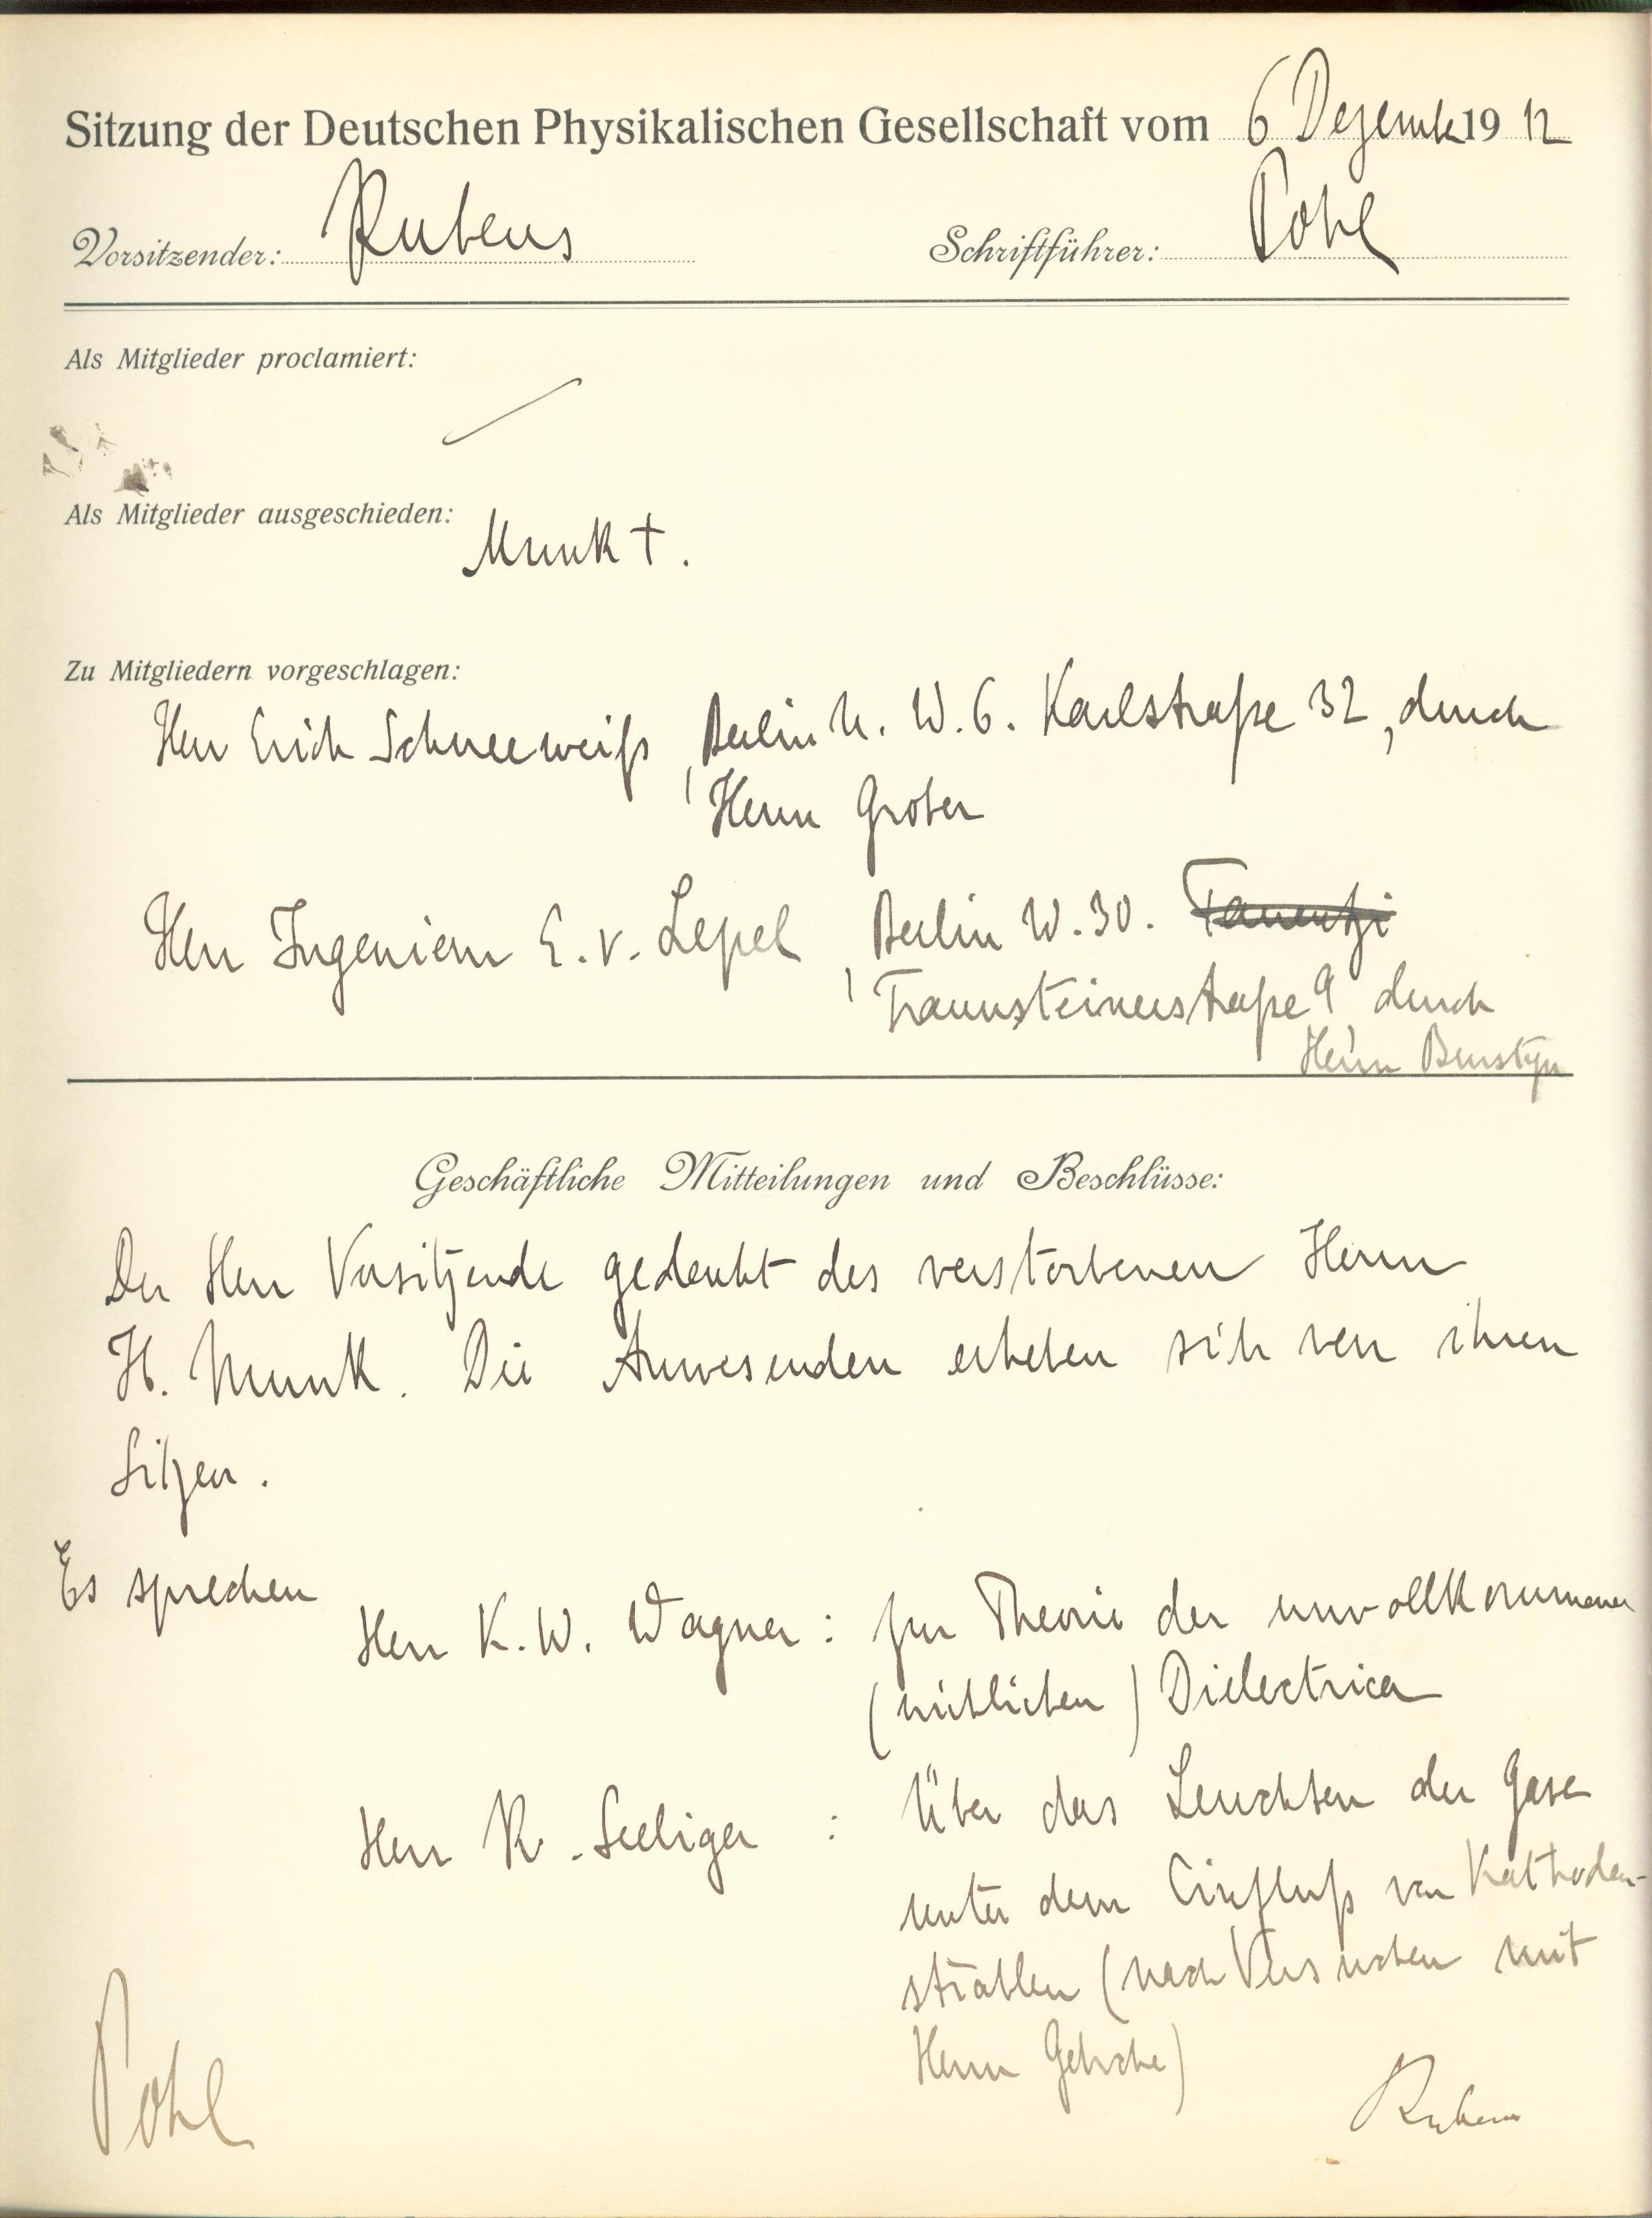 Sitzung der Deutschen Physikalischen Gesellschaft vom 6 Dezemb 19 12
Vorsitzender: Rubens Schriftführer: Pohl
Als Mitglieder proclamiert:
Als Mitglieder ausgeschieden: Munk †.
Zu Mitgliedern vorgeschlagen:
Herr Erich Schneeweiß, Berlin N. W. 6. Karlstraße 32, durch
Herrn Grober
Herr Ingenieur E. v. Lepel, Berlin W. 30. Tauentzi
Traunsteinerstraße 9 durch
Herrn Burstyn
Geschäftliche Mitteilungen und Beschlüsse:
Der Herr Vorsitzende gedenkt des verstorbenen Herrn
H. Munk. Die Anwesenden erheben sich von ihren
Sitzen.
Es sprechen
Herr K. W. Wagner: zur Theorie der unvollkommener
(wirklichen) Dielectrica
Herr R. Seeliger: Über das Leuchten der Gase
unter dem Einfluß von Kathoden-
strahlen (nach Versuchen mit
Herrn Gehrcke)
Pohl Rubens